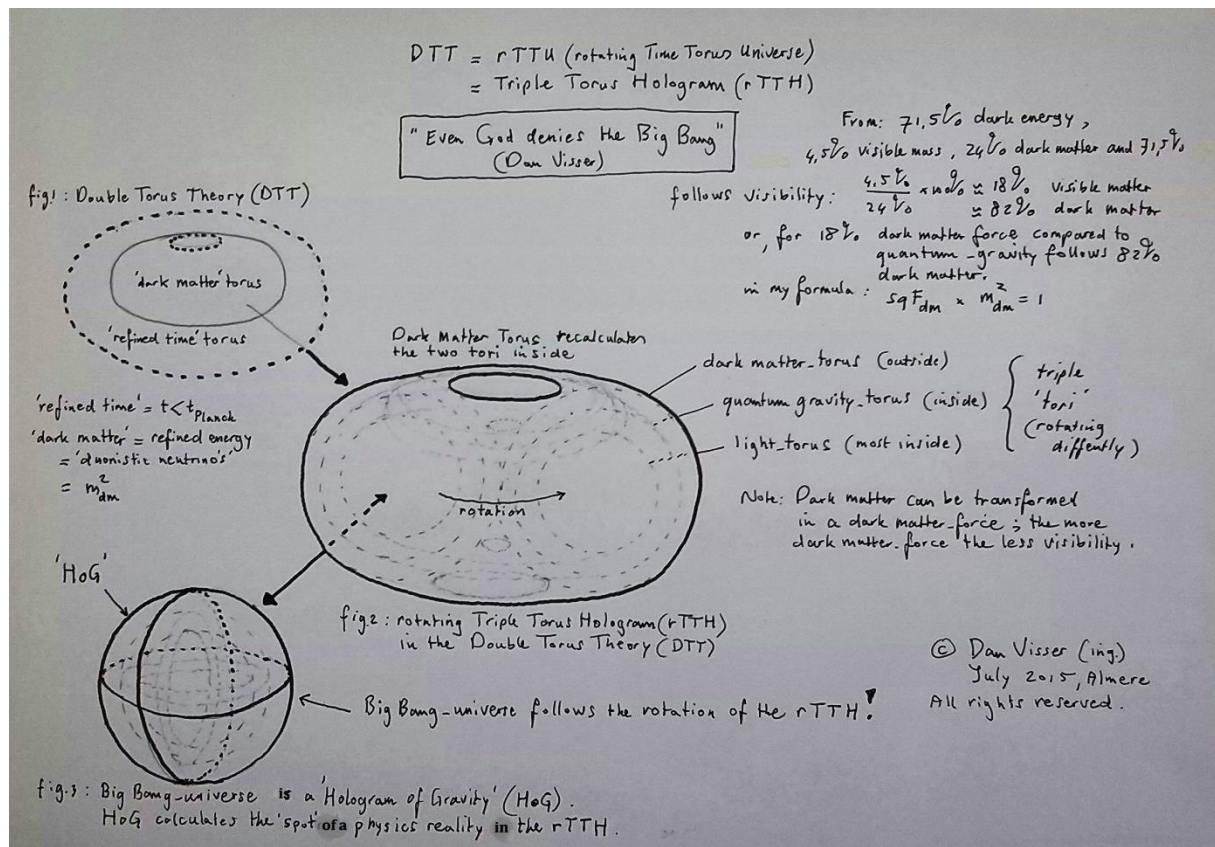 DTT = rTTU (rotating Time Torus Universe)
= Triple Torus Hologram (rTTH)
"Even God denies the Big Bang"
(Dan Visser)
From: 71,5% dark energy,
4,5% visible mass, 24% dark matter and 71,5%
follows visibility: 4,5% / 24% × 100% ≈ 18% visible matter
≈ 82% dark matter
or, for 18% dark matter force compared to
quantum-gravity follows 82%
dark matter.
in my formula: sq F dm × m²dm = 1
fig.1: Double Torus Theory (DTT)
'dark matter' torus
'refined time' torus
'refined time' = t < t Planck
'dark matter' = refined energy
= 'duonistic neutrino's'
= m²dm
Dark Matter Torus recalculates
the two tori inside
dark matter-torus (outside)
quantum gravity-torus (inside)
light-torus (most inside)
triple
'tori'
(rotating
diffently)
rotation
Note: Dark matter can be transformed
in a dark matter-force; the more
dark matter-force the less visibility.
fig.2: rotating Triple Torus Hologram (rTTH)
in the Double Torus Theory (DTT)
'HoG'
Big Bang-universe follows the rotation of the rTTH!
© Dan Visser (ing.)
July 2015, Almere
All rights reserved.
fig.3: Big Bang-universe is a 'Hologram of Gravity' (HoG).
HoG calculates the 'spot' of a physics reality in the rTTH.